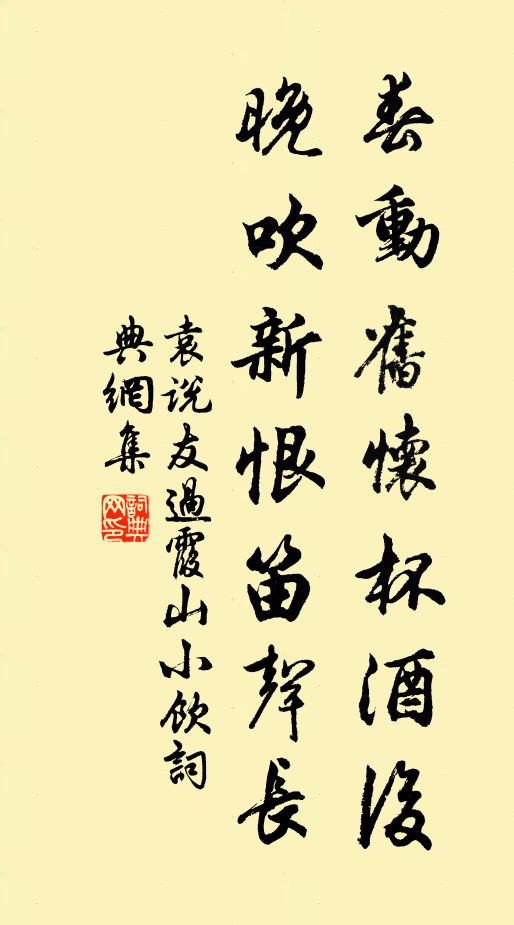 春動舊懷杯酒後
晚吹新恨笛聲長
袁説友過霞山小飲詞
典網集
詞典
网印